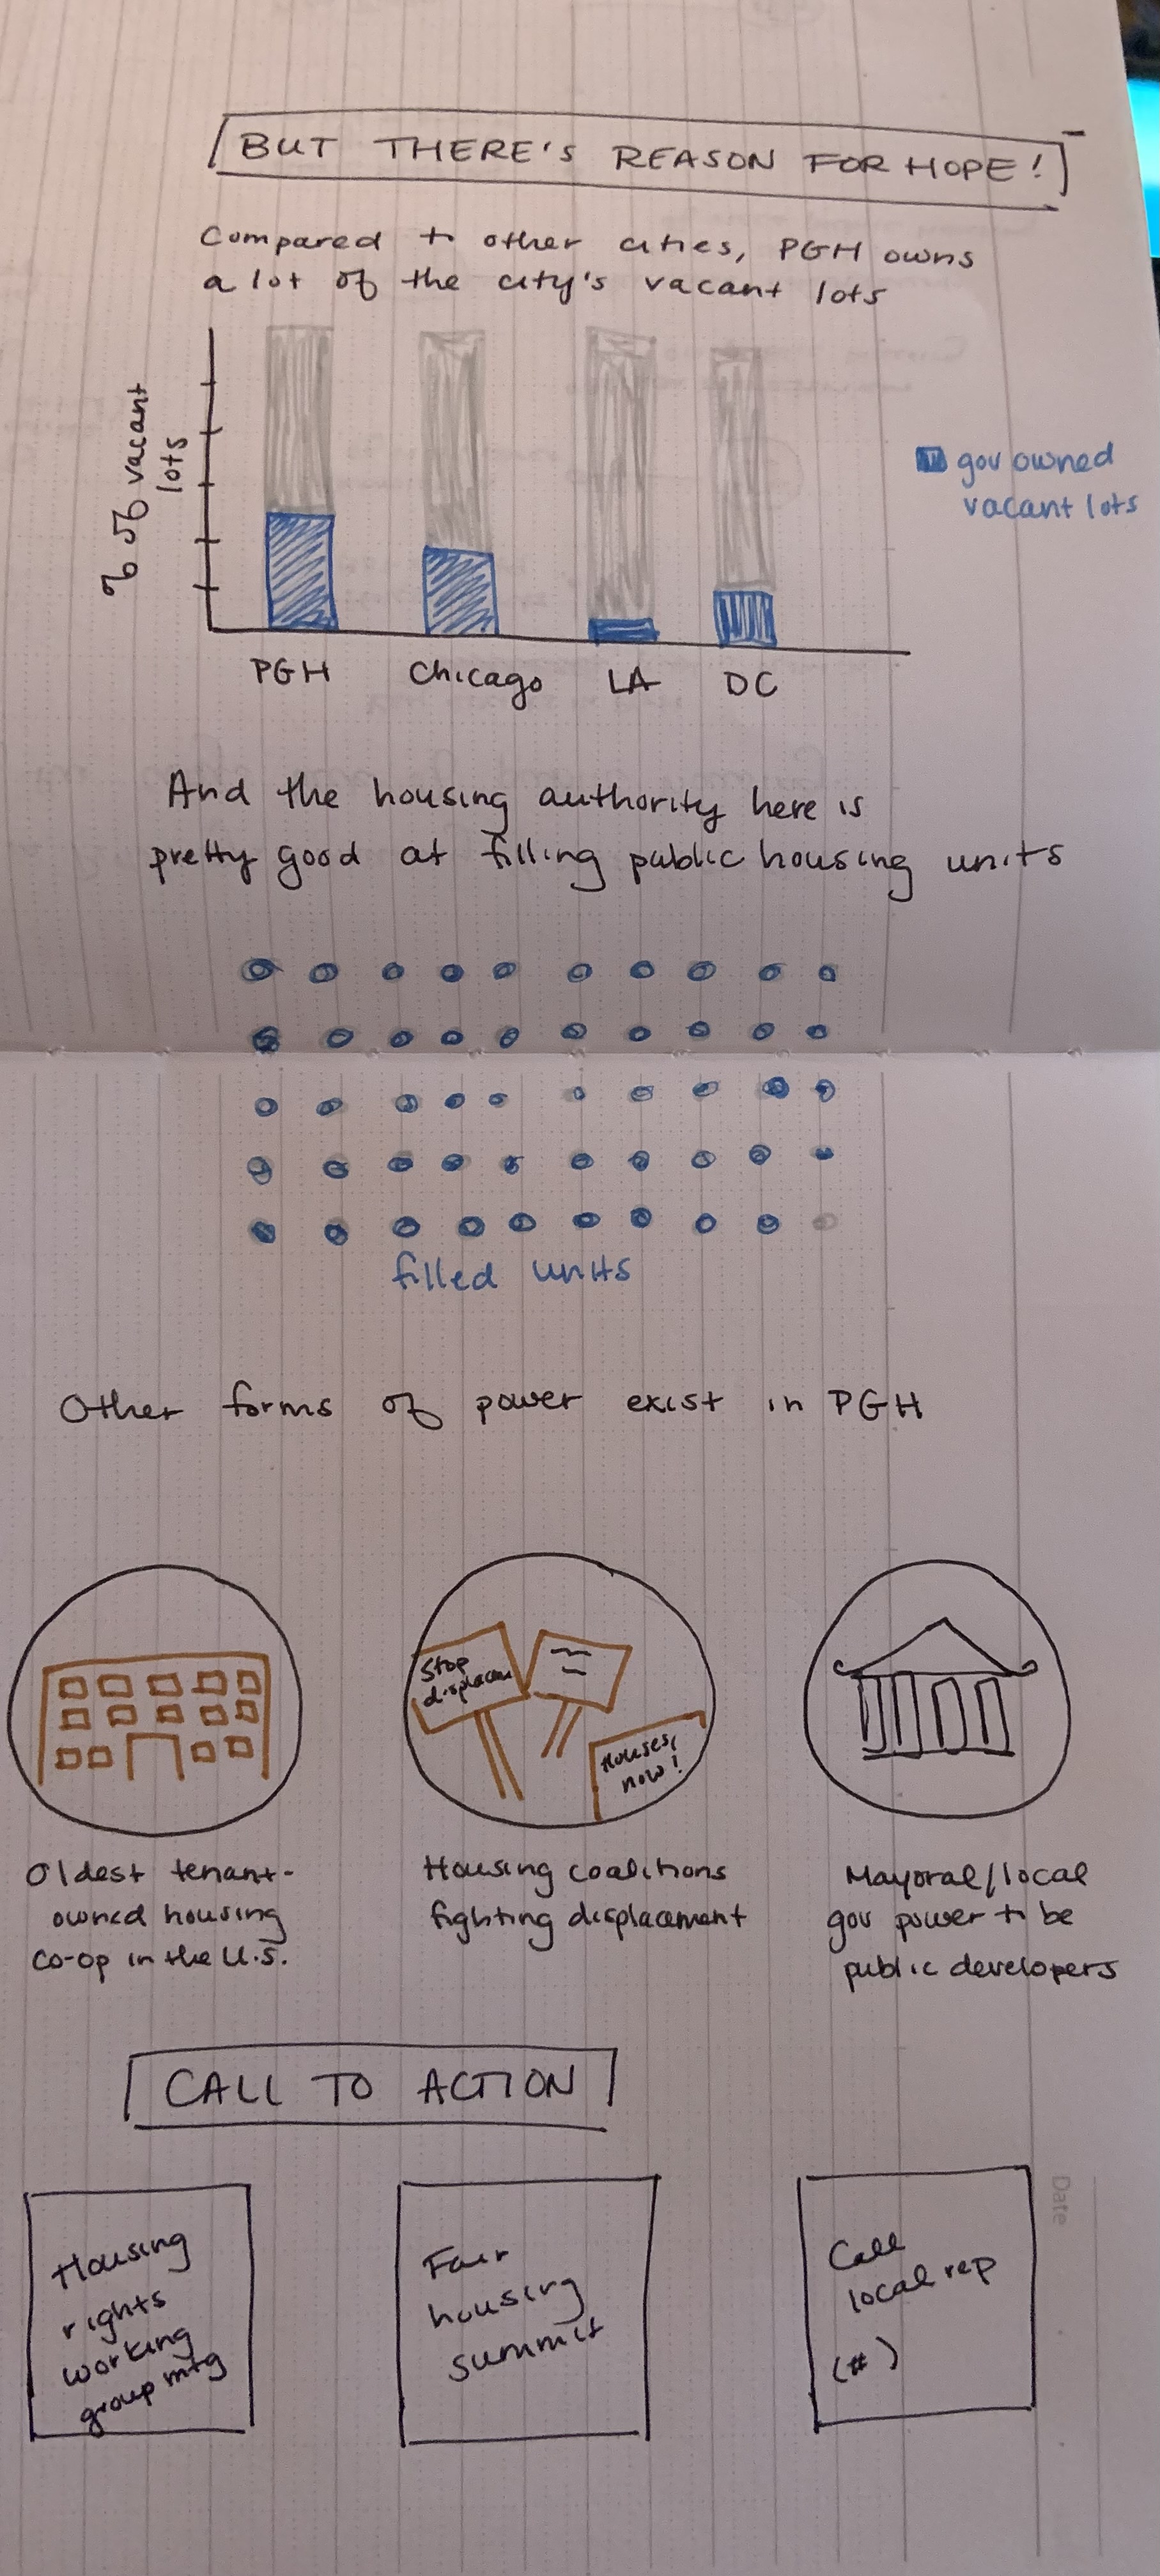 BUT THERE'S REASON FOR HOPE!
Compared to other cities, PGH owns
a lot of the city's vacant lots
% of vacant
lots
gov owned
vacant lots
PGH Chicago LA DC
And the housing authority here is
pretty good at filling public housing units
filled units
Other forms of power exist in PGH
Stop
displacem
Houses,
now!
Oldest tenant-
owned housing
co-op in the U.S.
Housing coalitions
fighting displacement
Mayoral/local
gov power to be
public developers
CALL TO ACTION
Housing
rights
working
group mtg
Fair
housing
summit
Call
local rep
(#)
Date